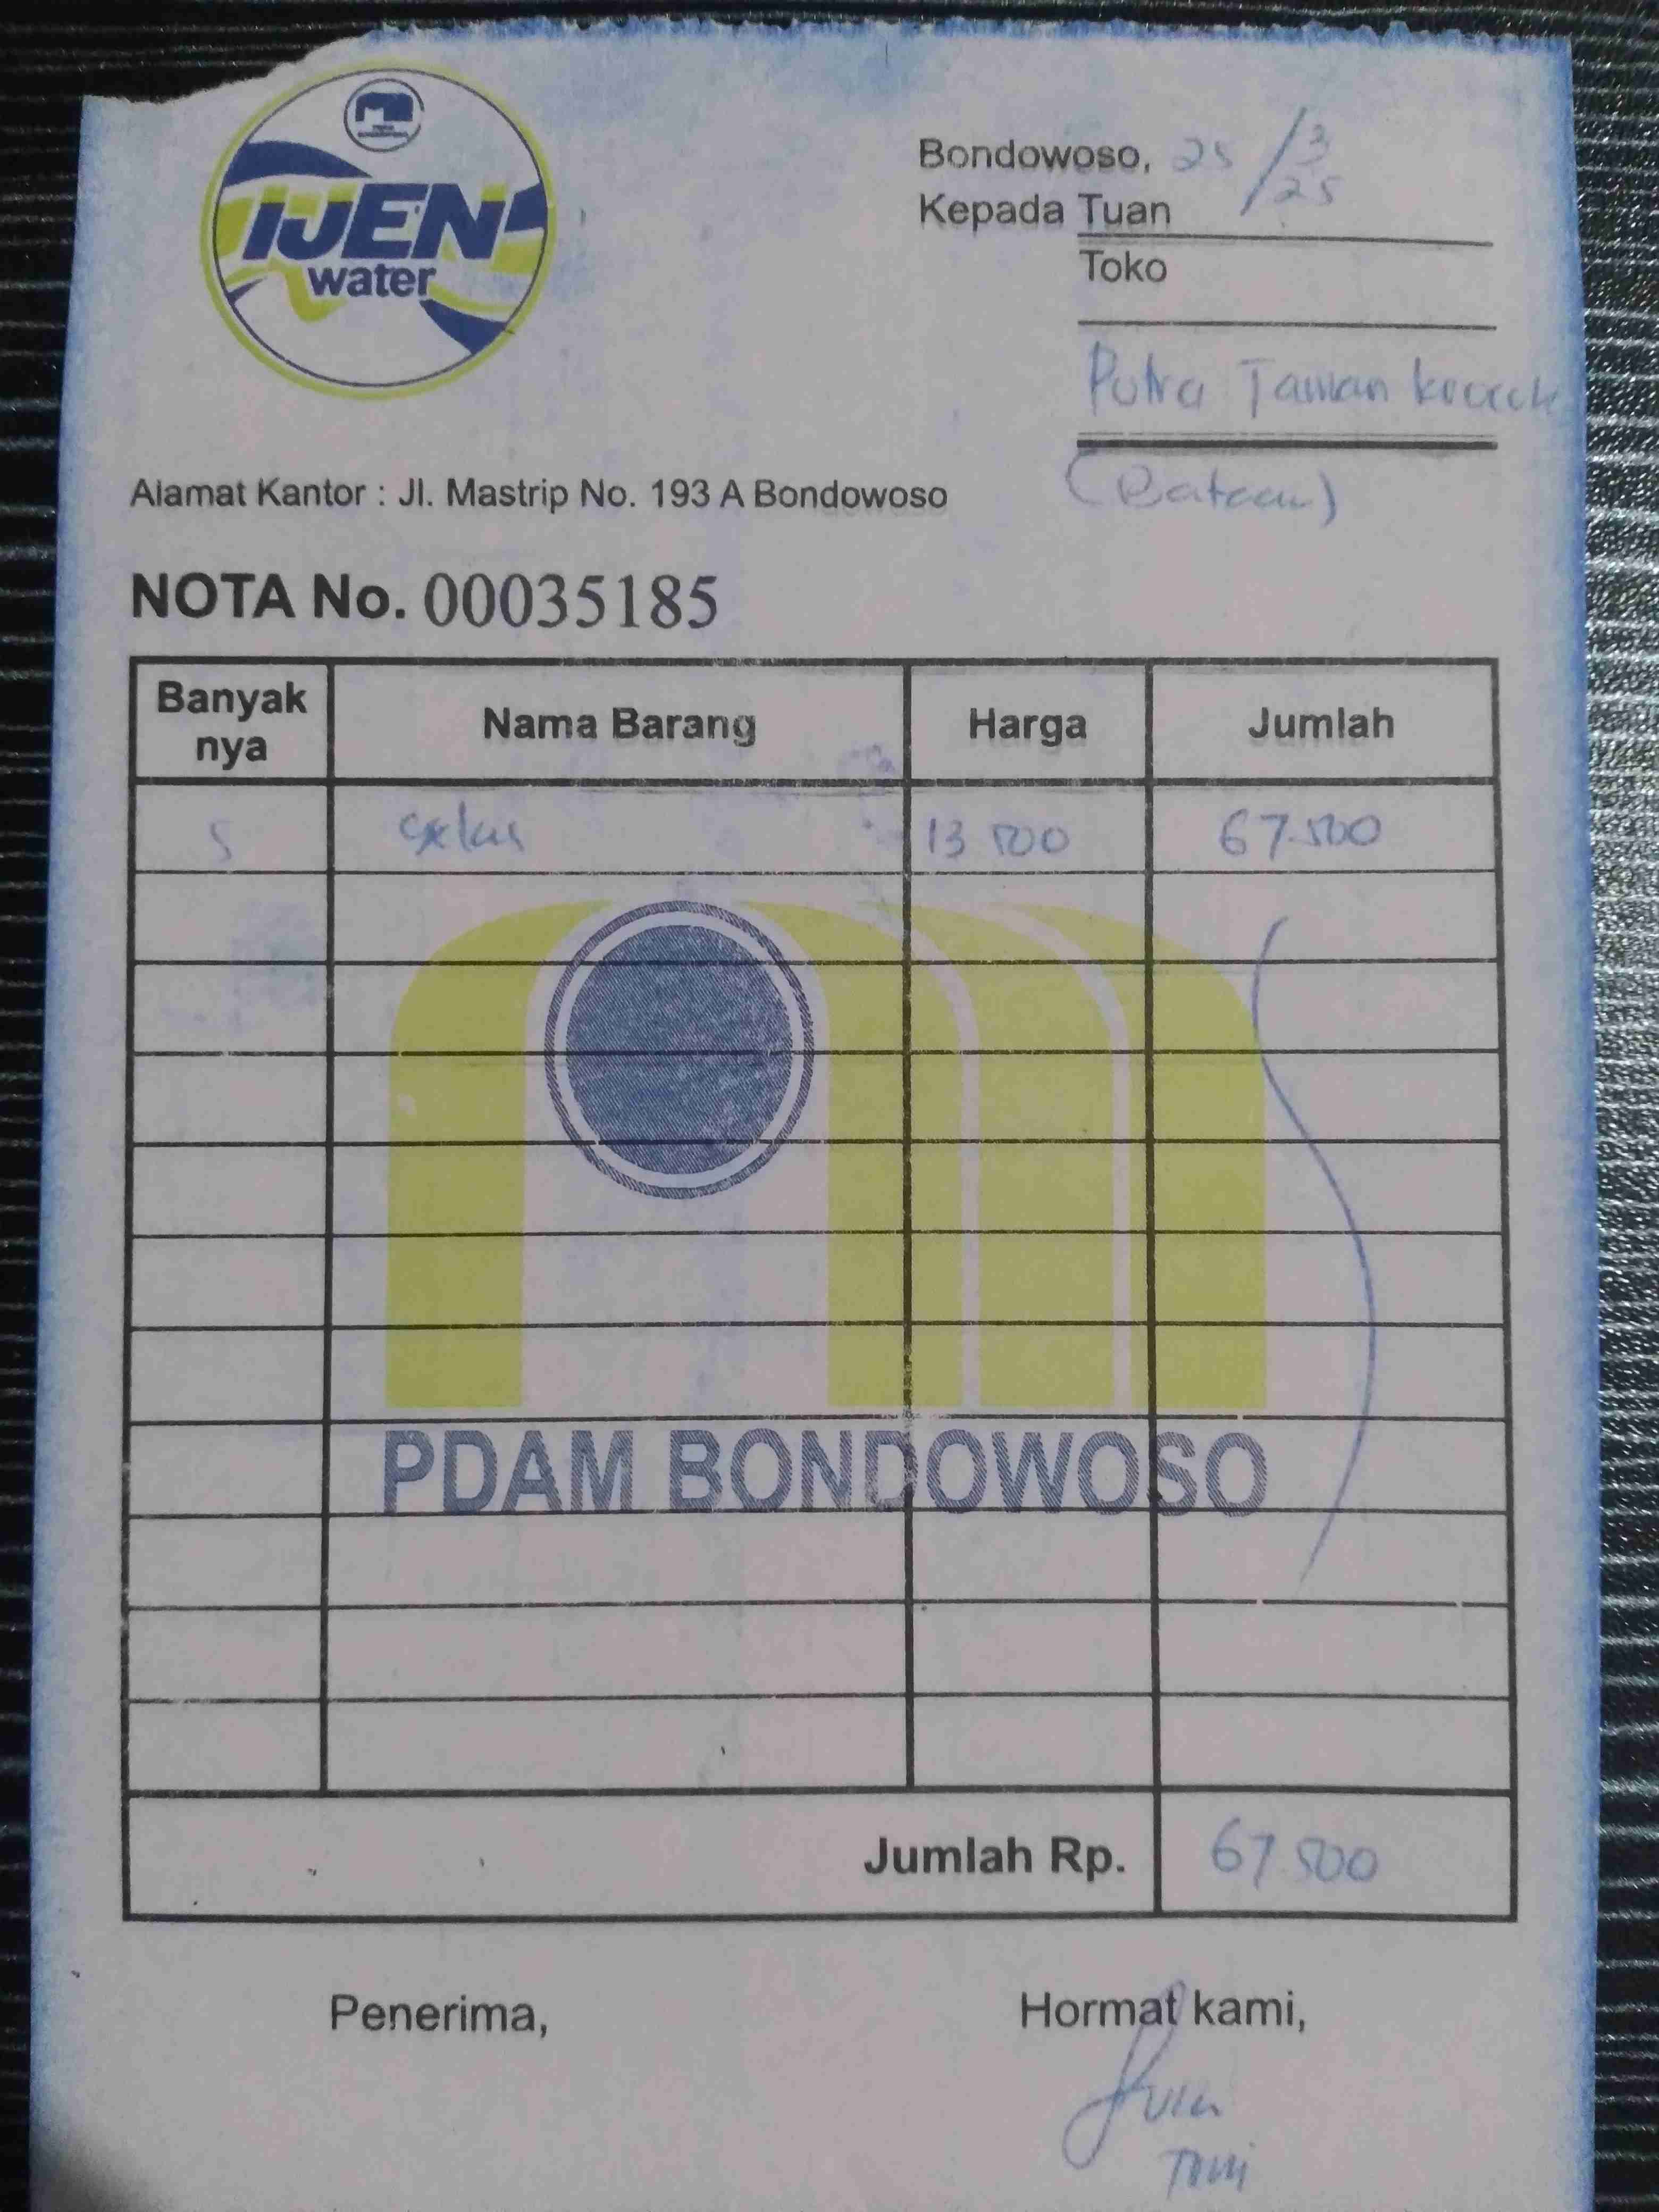 IJEN
water
Bondowoso, 25/3/25
Kepada Tuan
Toko
Putra Taman
(Bataan)
Alamat Kantor : Jl. Mastrip No. 193 A Bondowoso
NOTA No. 00035185
Banyak nya Nama Barang Harga Jumlah
5 gelas 13 500 67.500
PDAM BONDOWOSO
Jumlah Rp. 67 500
Penerima, Hormat kami,